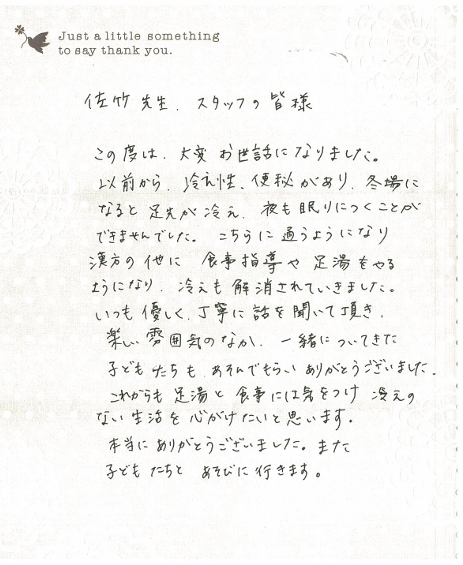 Just a little something
to say thank you.
佐竹先生、スタッフの皆様
この度は、大変お世話になりました。
以前から、冷え性、便秘があり、冬場に
なると足先が冷え、夜も眠りにつくことが
できませんでした。こちらに通うようになり
漢方の他に 食事指導や足湯をやる
ようになり、冷えも解消されていきました。
いつも優しく、丁寧に話を聞いて頂き、
楽しい雰囲気のなか、一緒についてきた
子どもたちも、あそんでもらい ありがとうございました。
これからも足湯と食事には気をつけ 冷えの
ない生活を心がけたいと思います。
本当にありがとうございました。また
子どもたちと あそびに行きます。